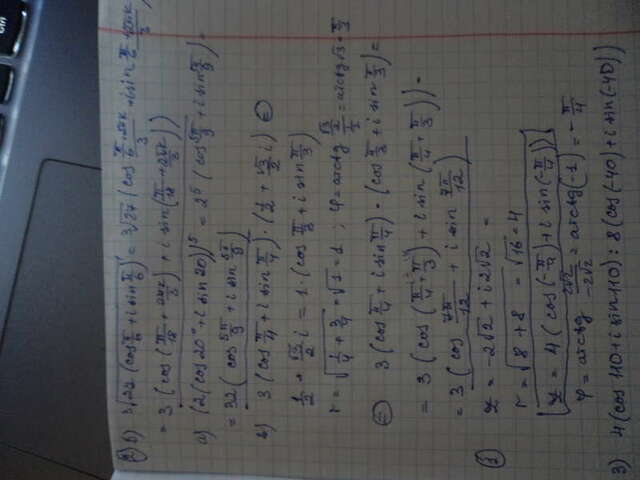 2) б) ∛27 (cos π/6 + i sin π/6) = 3√27 (cos (π/6 + 2πk)/3 + i sin (π/6 + 2πk)/3) =
= 3 (cos (π/18 + 2πk/3) + i sin (π/18 + 2πk/3))
а) (2(cos 20° + i sin 20))⁵ = 2⁵ (cos 5π/9 + i sin 5π/9) =
= 32 (cos 5π/9 + i sin 5π/9)
в) 3 (cos π/4 + i sin π/4) · (1/2 + √3/2 i) ⊜
1/2 + √3/2 i = 1 · (cos π/3 + i sin π/3)
r = √(1/4 + 3/4) = √1 = 1 ; φ = arctg (√3/2)/(1/2) = arctg √3 = π/3
⊜ 3 (cos π/4 + i sin π/4) · (cos π/3 + i sin π/3) =
= 3 (cos (π/4 + π/3) + i sin (π/4 + π/3)) =
= 3 (cos 7π/12 + i sin 7π/12)
z = -2√2 + i 2√2 =
r = √(8 + 8) = √16 = 4
z = 4 (cos (-π/4) + i sin (-π/4))
φ = arctg 2√2/(-2√2) = arctg (-1) = -π/4
3) 4 (cos 110 + i sin 110) : 8 (cos (-40) + i sin (-40))